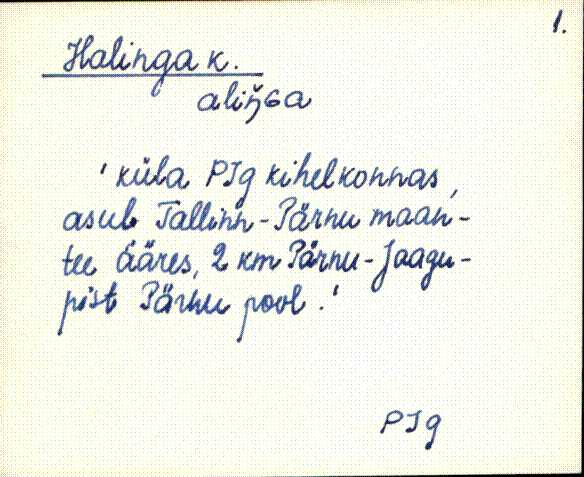 1.
Halinga k.
aliŋ̆ɢa
' küla PJg kihelkonnas,
asub Tallinn-Pärnu maan-
tee ääres, 2 km Pärnu-Jaagu-
pist Pärnu pool.'
PJg